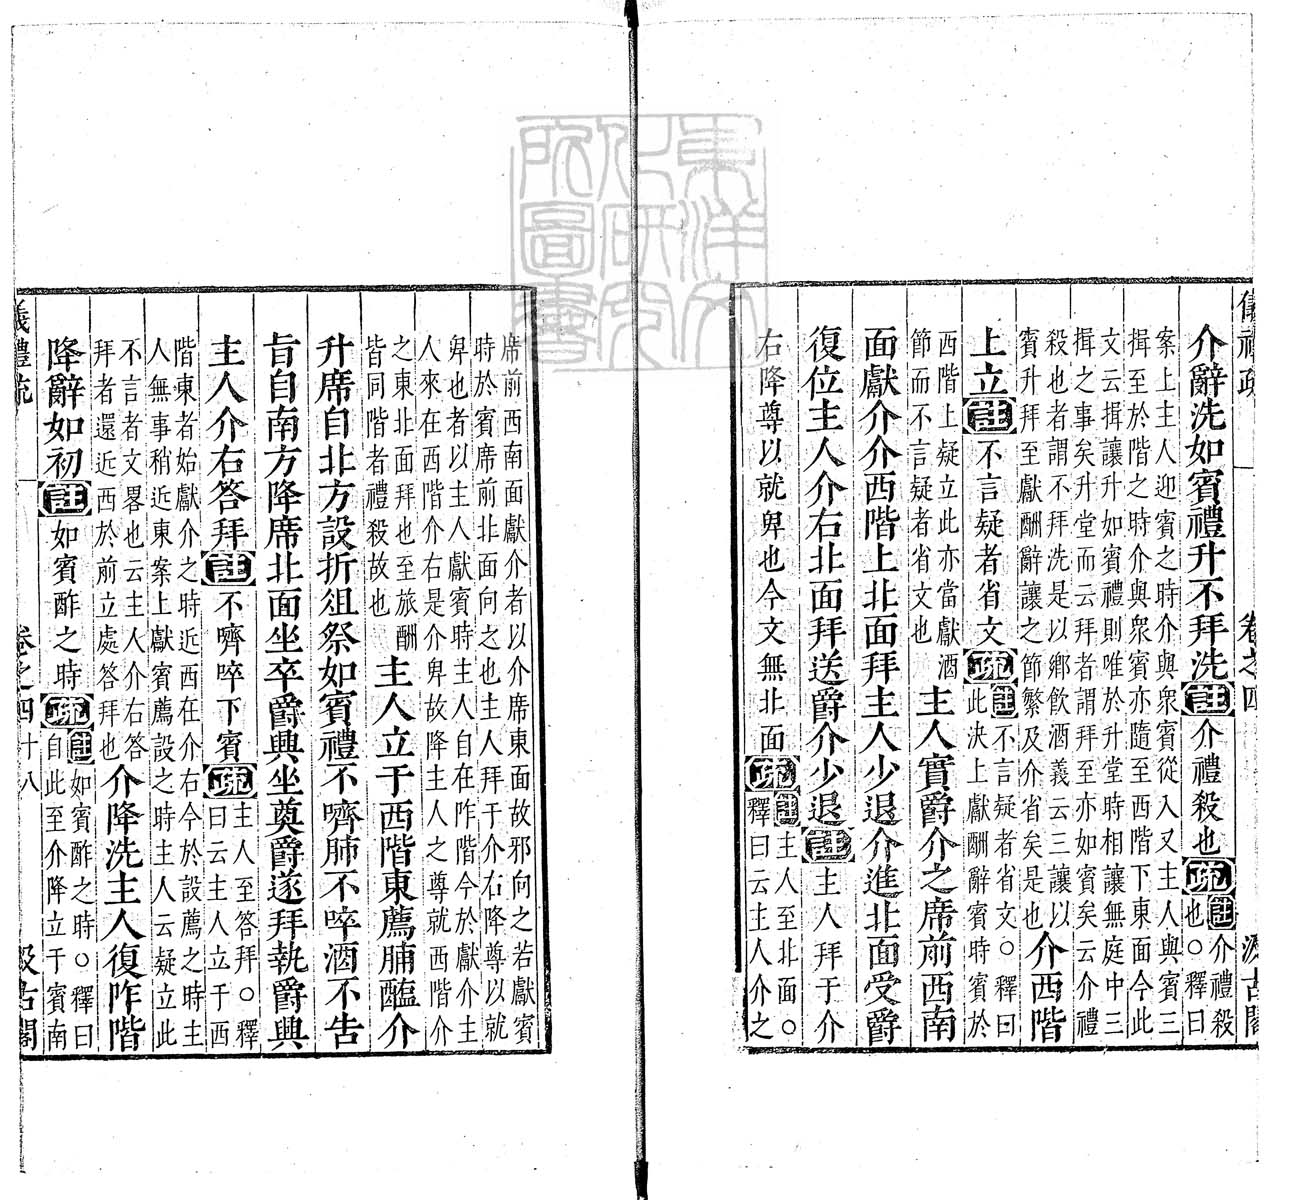 儀禮疏 卷之四 汲古閣
介辭洗如賓禮升不拜洗註介禮殺也疏註介禮殺
也○釋曰
案上主人迎賓之時介與衆賓從入又主人與賓三
揖至於階之時介與衆賓亦隨至西階下東面今此
文云揖讓升如賓禮則唯於升堂時相讓無庭中三
揖之事矣升堂而云拜者謂拜至亦如賓矣云介禮
殺也者謂不拜洗是以鄉飲酒義云三讓以
賓升拜至獻酬辭讓之節繁及介省矣是也介西階
上立註不言疑者省文疏註不言疑者省文○釋曰
此決上獻酬辭賓時賓於
西階上疑立此亦當獻酒
節而不言疑者省文也主人實爵介之席前西南
面獻介介西階上北面拜主人少退介進北面受爵
復位主人介右北面拜送爵介少退註主人拜于介
右降尊以就卑也今文無北面疏註主人至北面○
釋曰云主人介之
席前西南面獻介者以介席東面故邪向之若獻賓
時於賓席前北面向之也主人拜于介右降尊以就
卑也者以主人獻賓時主人自在阼階今於獻介主
人來在西階介右是介卑故降主人之尊就西階介
之東北面拜也至旅酬
皆同階者禮殺故也主人立于西階東薦脯醢介
升席自北方設折俎祭如賓禮不嚌肺不啐酒不告
旨自南方降席北面坐卒爵興坐奠爵遂拜執爵興
主人介右答拜註不嚌啐下賓疏主人至答拜○釋
曰云主人立于西
階東者始獻介之時近西在介右今於設薦之時主
人無事稍近東案上獻賓薦設之時主人云疑立此
不言者文畧也云主人介右答
拜者還近西於前立處答拜也介降洗主人復阼階
降辭如初註如賓酢之時疏註如賓酢之時○釋曰
自此至介降立于賓南
儀禮疏 卷之四 十八 汲古閣